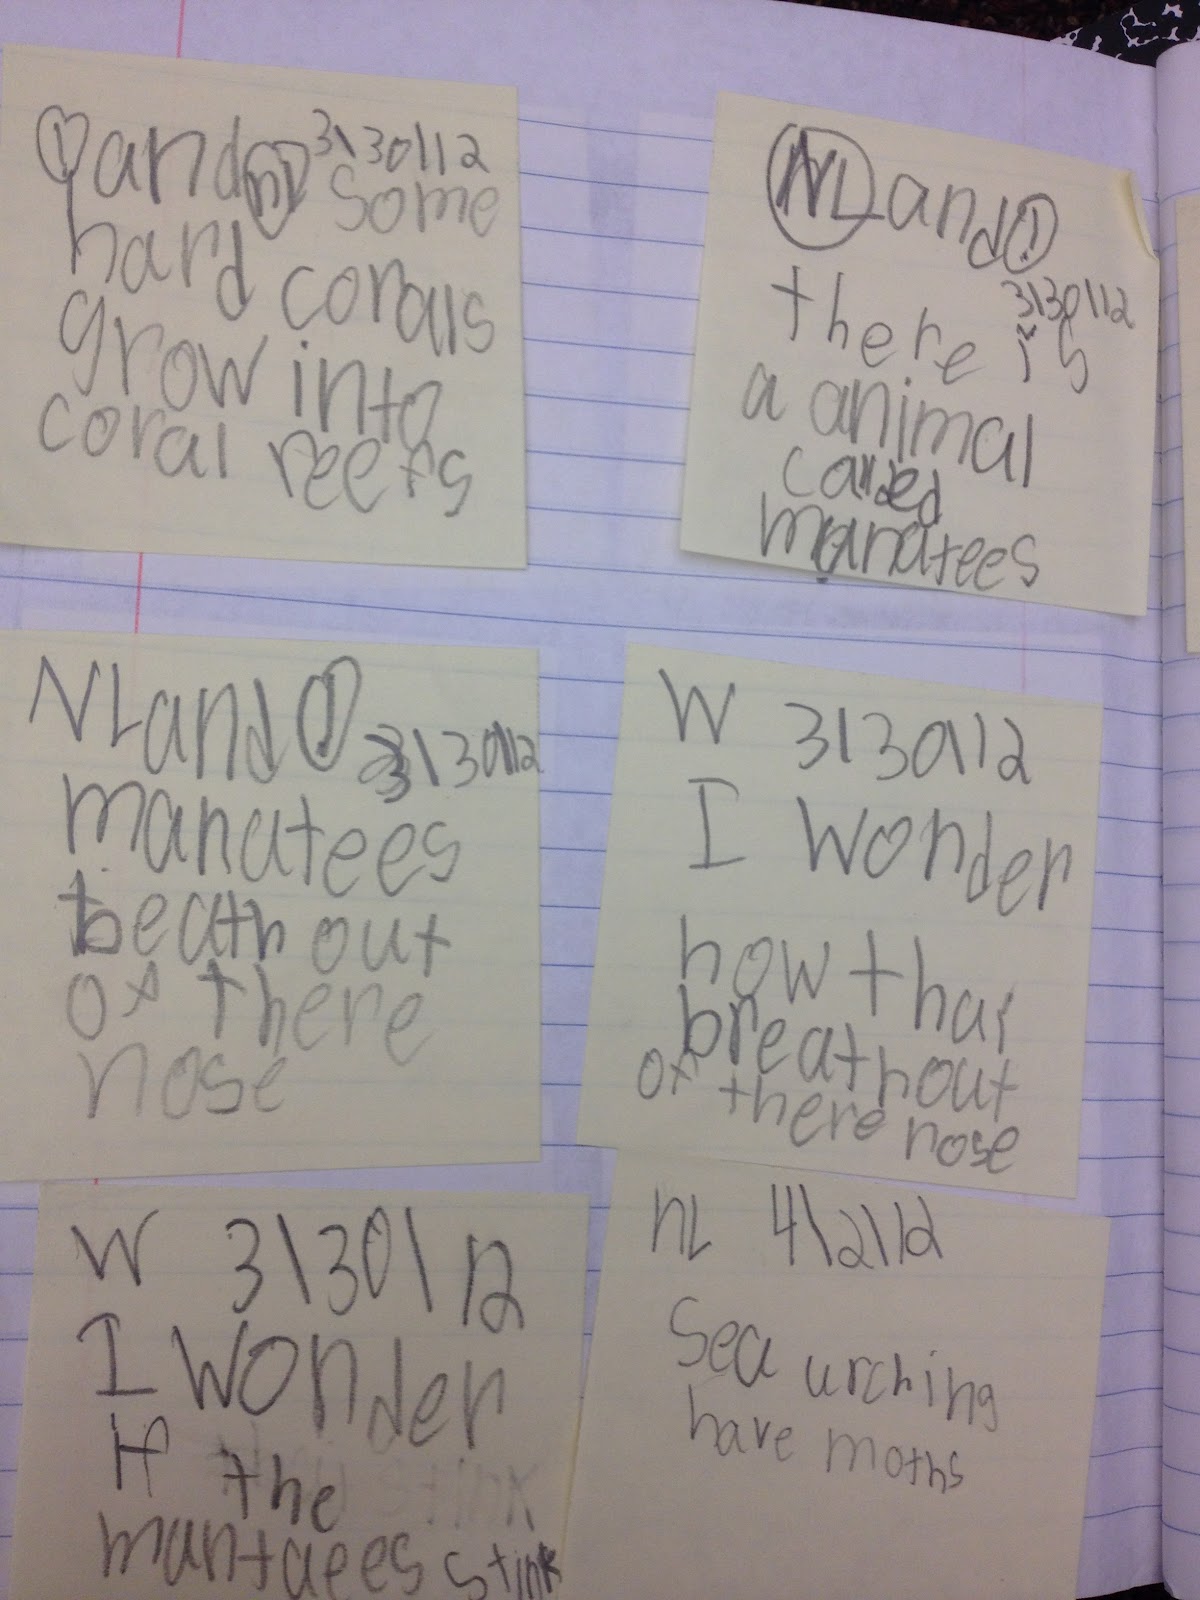 ! and nl 3/30/12
some
hard corals
grow into
coral reefs
NL and !
3/30/12
there is
a animal
called
manatees
NL and ! 3/30/12
manatees
beath out
of there
nose
W 3/30/12
I wonder
how thay
breath out
of there nose
W 3/30/12
I wonder
if the
mantaees stink
nL 4/2/12
Sea urching
have moths